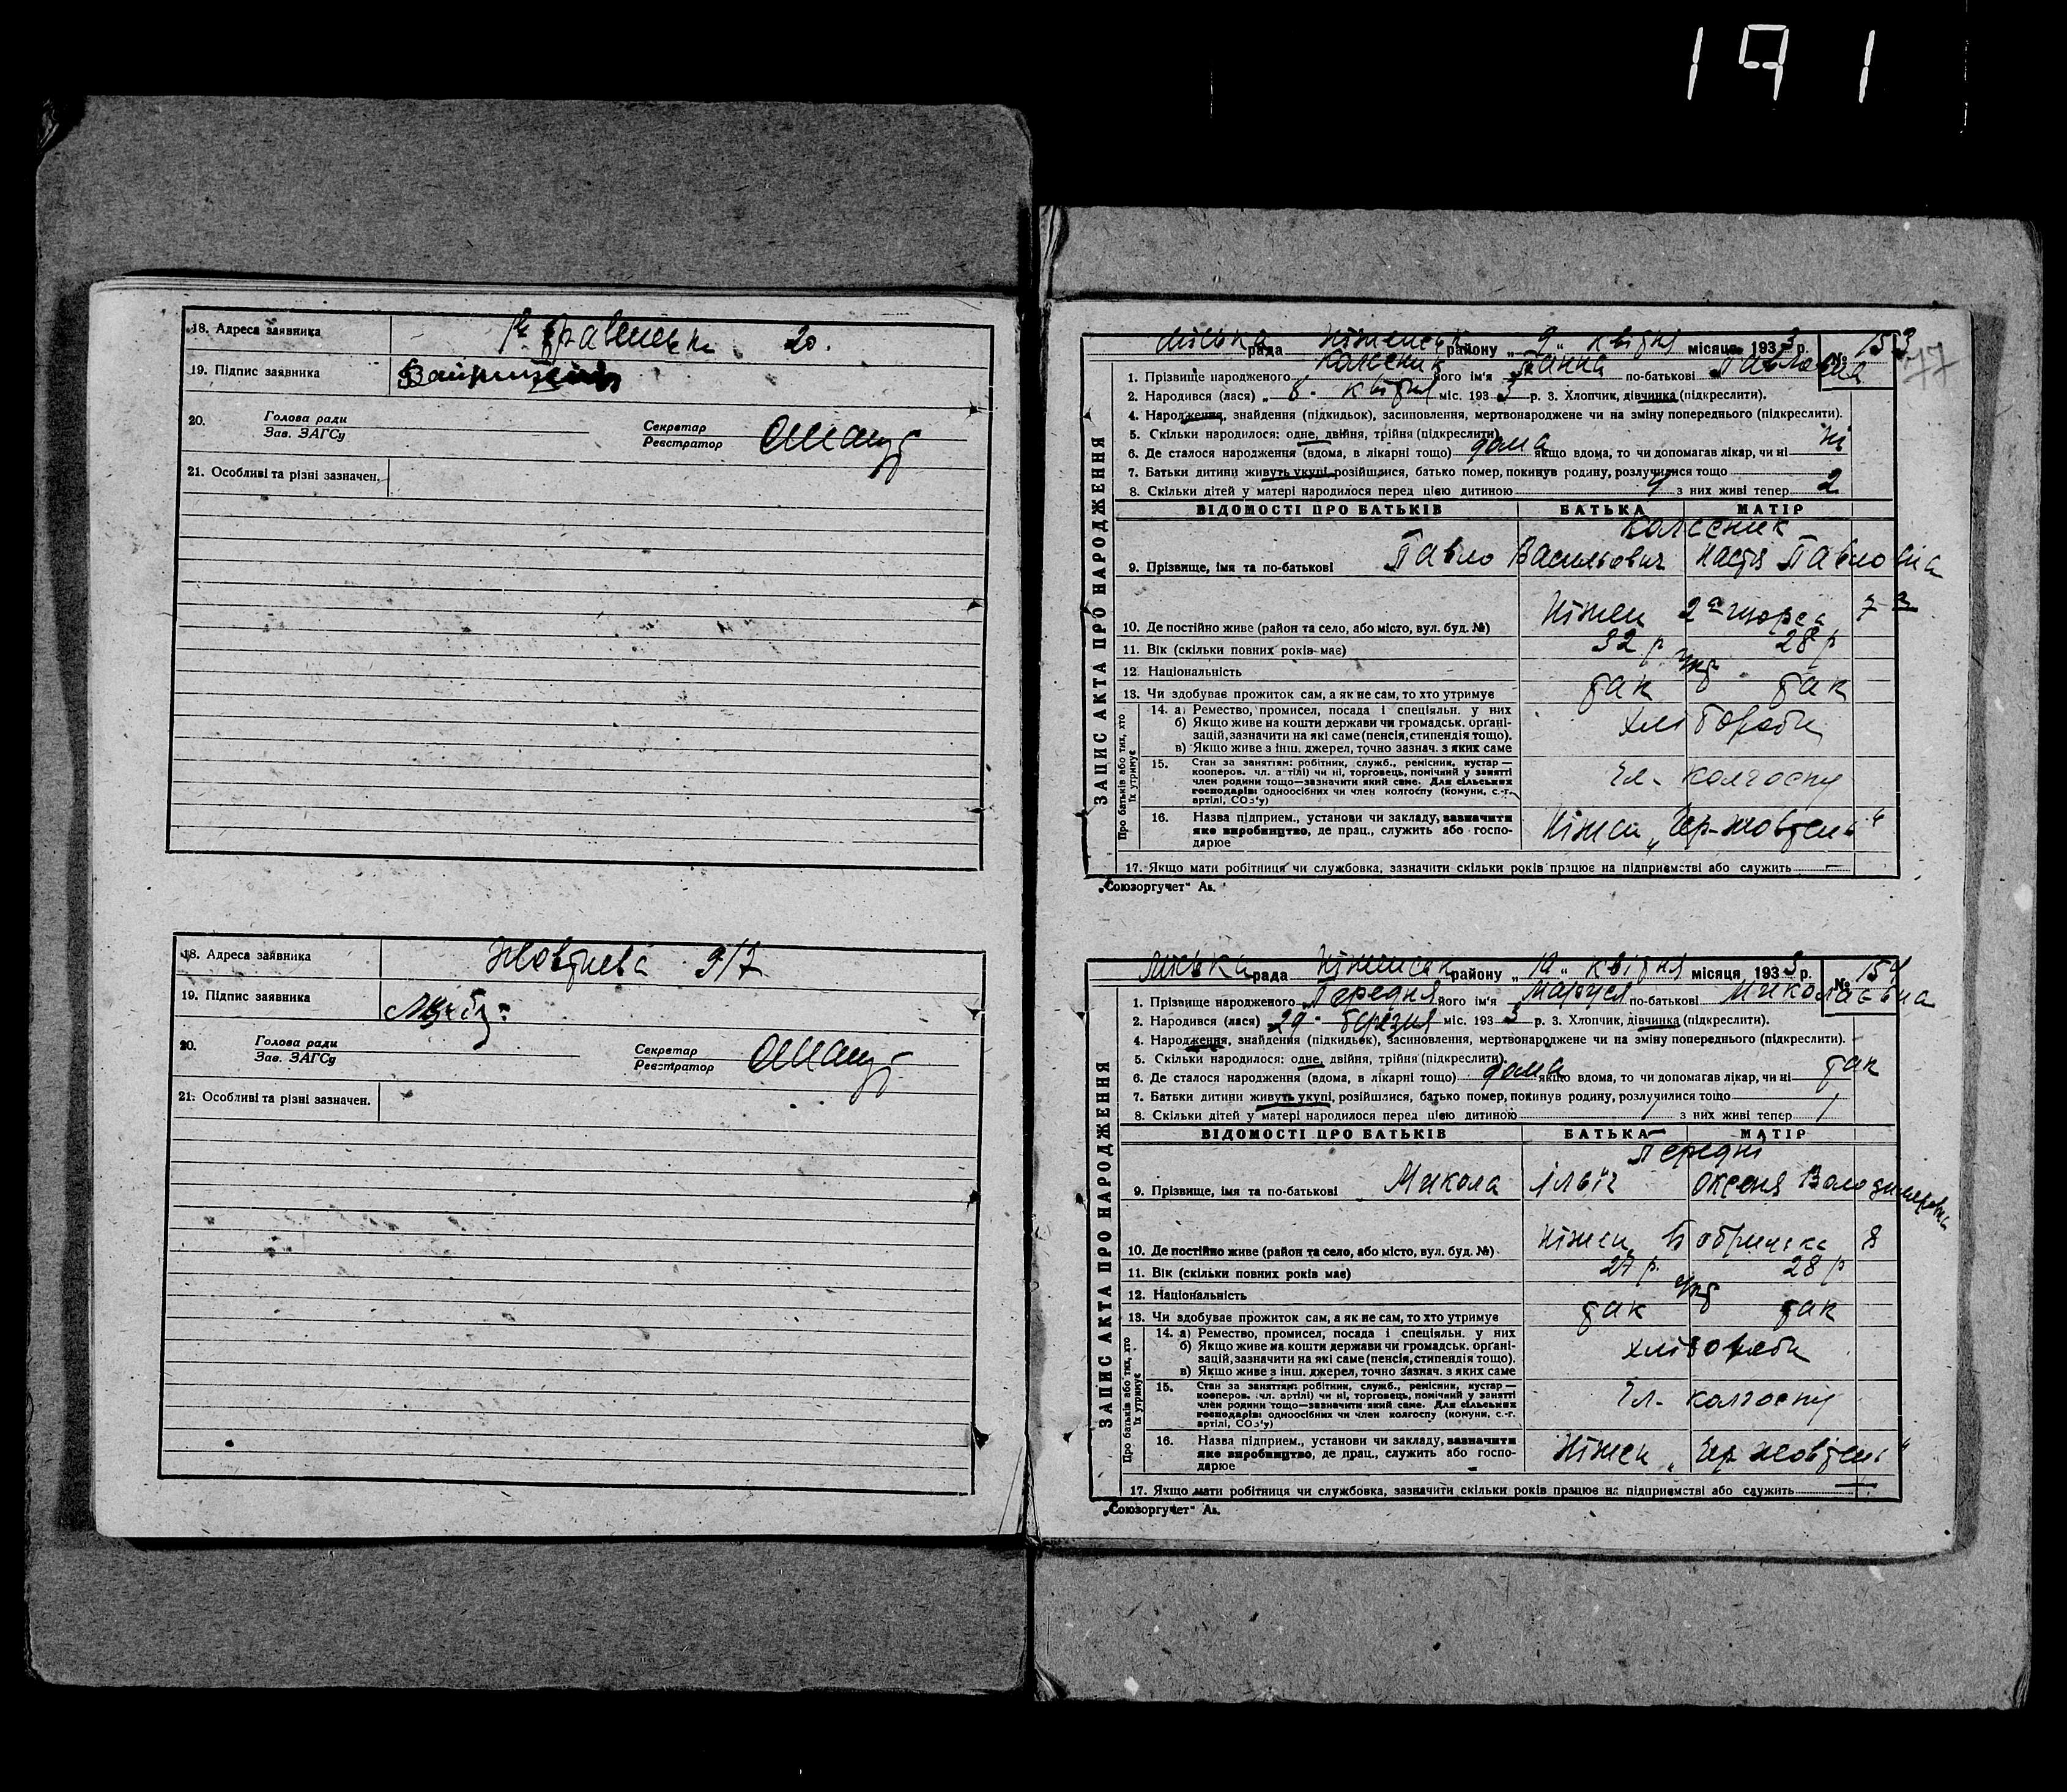 191
18. Адреса заявника 20.
19. Підпис заявника
20. Голова ради
Зав. ЗАГСу
Секретар
Реєстратор
21. Особливі та різні зазначен.
18. Адреса заявника Жовтнева 9/7
19. Підпис заявника
20. Голова ради
Зав. ЗАГСу
Секретар
Реєстратор
21. Особливі та різні зазначен.
77
ЗАПИС АКТА ПРО НАРОДЖЕННЯ
міська рада Ніженськ району „ 9 „ квітня місяця 1933 р. № 153
1. Прізвище народженого Колєсник його ім'я Ганна по-батькові Павловна
2. Народився (лася) „ 8 - квітня міс. 1933 р. 3. Хлопчик, дівчинка (підкреслити).
4. Народження, знайдення (підкидьок), засиновлення, мертвонароджене чи на зміну попереднього (підкреслити).
5. Скільки народилося: одне, двійня, трійня (підкреслити)
6. Де сталося народження (вдома, в лікарні тощо) дома якщо вдома, то чи допомагав лікар, чи ні ні
7. Батьки дитини живуть укупі, розійшлися, батько помер, покинув родину, розлучилися тощо
8. Скільки дітей у матері народилося перед цією дитиною 4 з них живі тепер 2
ВІДОМОСТІ ПРО БАТЬКІВ БАТЬКА МАТІР
Колєсник
9. Прізвище, імя та по-батькові Павло Васильович Настя Павловна
10. Де постійно живе (район та село, або місто, вул. буд. №) Ніжен 2а
11. Вік (скільки повних років має) 32 р 28 р
12 Національність Укр
13. Чи здобуває прожиток сам, а як не сам, то хто утримує так так
Про батьків або тих, хто їх утримує
14. а) Ремество, промисел, посада і спеціяльн. у них
б) Якщо живе на кошти держави чи громадськ. орґані-
зацій, зазначити на які саме (пенсія, стипендія тощо).
в) Якщо живе з інш. джерел, точно зазнач. з яких саме
хлібороби
15. Стан за заняттям: робітник, служб., ремісник, кустар —
кооперов. чл. артілі) чи ні, торговець, помічний у занятті
член родини тощо—зазначити який саме. Для сільських
господарів: одноосібних чи член колгоспу (комуни, с.-г.
артілі, СОЗ'у)
Чл- колгоспу
16. Назва підприєм., установи чи закладу, зазначити
яке виробництво, де прац., служить або госпо-
дарює
Ніжен „Чер-жовтень“
17. Якщо мати робітниця чи службовка, зазначити скільки років працює на підприємстві або служить —
„Союзоргучет“ Ав.
ЗАПИС АКТА ПРО НАРОДЖЕННЯ
міська рада Ніженськ району „ 10 „ квітня місяця 1933 р. № 154
1. Прізвище народженого Передня його ім'я Маруся по-батькові Миколаєвна
2. Народився (лася) 29 - березня міс. 1933 р. 3. Хлопчик, дівчинка (підкреслити).
4. Народження, знайдення (підкидьок), засиновлення, мертвонароджене чи на зміну попереднього (підкреслити).
5. Скільки народилося: одне, двійня, трійня (підкреслити).
6. Де сталося народження (вдома, в лікарні тощо) дома якщо вдома, то чи допомагав лікар, чи ні так
7. Батьки дитини живуть укупі, розійшлися, батько помер, покинув родину, розлучилися тощо
8. Скільки дітей у матері народилося перед цією дитиною 1 з них живі тепер 1
ВІДОМОСТІ ПРО БАТЬКІВ БАТЬКА МАТІР
Передні
9. Прізвище, імя та по-батькові Микола Ільїч Оксеня Володимировна
10. Де постійно живе (район та село, або місто, вул. буд. №) Ніжен 8
11. Вік (скільки повних років має) 27 р. 28 р
12. Національність Укр
13. Чи здобуває прожиток сам, а як не сам, то хто утримує так так
Про батьків або тих, хто їх утримує
14. а) Ремество, промисел, посада і спеціяльн. у них
б) Якщо живе на кошти держави чи громадськ. орґані-
зацій, зазначити на які саме (пенсія, стипендія тощо).
в) Якщо живе з інш. джерел, точно зазнач. з яких саме
хлібороби
15. Стан за заняттям: робітник, служб., ремісник, кустар —
кооперов. (чл. артілі) чи ні, торговець, помічний у занятті
член родини тощо—зазначити який саме. Для сільських
господарів: одноосібних чи член колгоспу (комуни, с.-г.
артілі, СОЗ'у)
Чл- колгоспу
16. Назва підприєм., установи чи закладу, зазначити
яке виробництво, де прац., служить або госпо-
дарює
Ніжен „Чер жовтень“
17. Якщо мати робітниця чи службовка, зазначити скільки років працює на підприємстві або служить —
„Союзоргучет“ Ав.